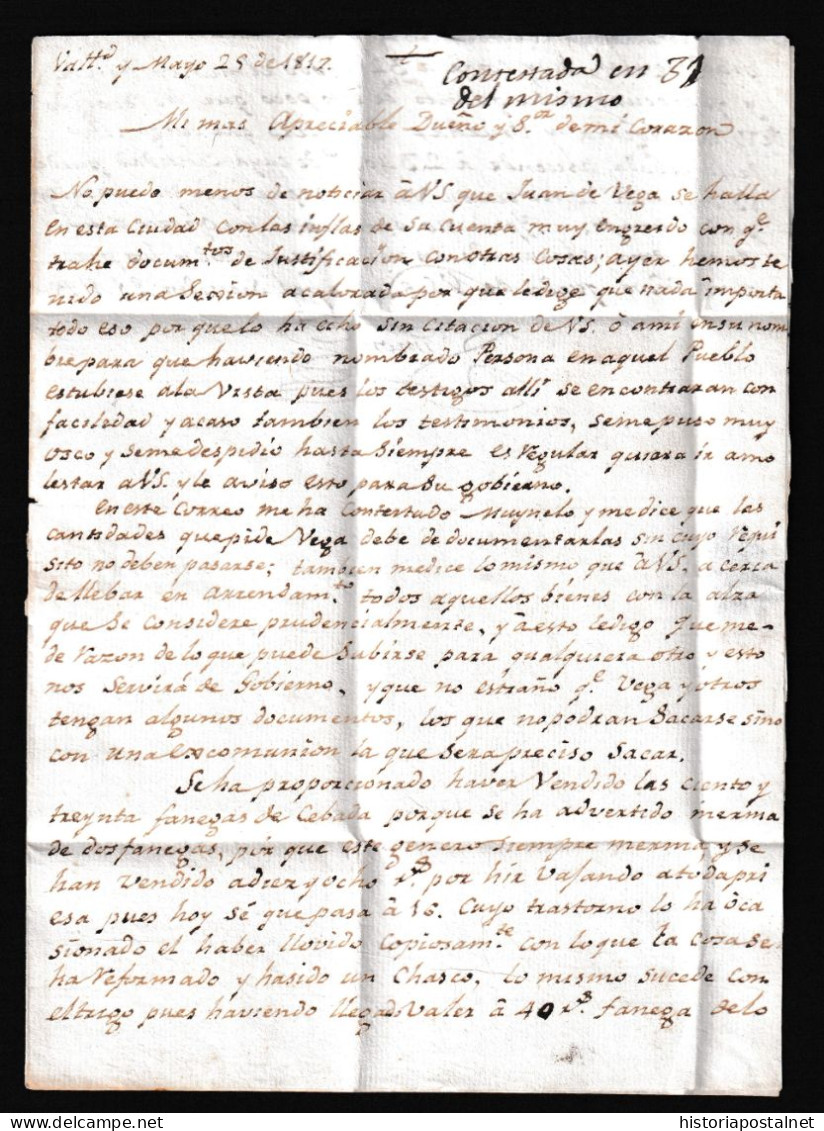 Vall.d y Mayo 28 de 1817.
Contestada en 31
del mismo
Mi mas Apreciable Dueño y S.or de mi Corazon
No puedo menos de noticiar â VS. que Juan de Vega se halla
en esta Ciudad con las inflas de sa Cuenta muy engreido con q.e
trahe docum.tos de Justificacion con otras Cosas; ayer hemos te
nido una Session acalorada por que le dige que nada importa
todo eso por que lo ha echo sin Citacion de VS. ô a mi en su nom
bre para que haviendo nombrado Persona en aquel Pueblo
estubiese a la Vista pues los testigos alli se encontraran con
faciledad y acaso tambien los testimonios, seme puso muy
osco y seme despidio hasta siempre es Regular quiera ir amo
lestar a VS. y le aviso esto para su gobierno.
En este Correo me ha Contestado Muynelo y me dice que las
cantidades que pide Vega debe de documentarlas sin cuyo Requi
sito no deben pasarse; tambien me dice lo mismo que â VS. a cerca
de llebar en arrendam.to todos aquellos bienes con la alza
que se considere prudencialmente, y â esto le digo que me
de Razon de lo que puede Subirse para qualquiera otro y esto
nos Servirá de Gobierno, y que no estraño q.e Vega y otros
tengan algunos documentos, los que no podran Sacarse sino
con una excomunion la que sera preciso Sacar.
Se ha proporcionado haver Vendido las ciento y
treynta fanegas de Cebada porque se ha advertido merma
de dos fanegas, por que este genero siempre merma, y se
han Vendido a diez y ocho r.s por hir Vajando a toda pri
esa pues hoy sé que pasa â 16. Cuyo trastorno lo ha ôca
sionado el haber llovido Copiosam.te con lo que la cosa se
ha Reformado y ha sido un Chasco, lo mismo sucede con
el trigo pues haviendo llegado Valer â 40 r.s fanega de lo
historiapostalnet